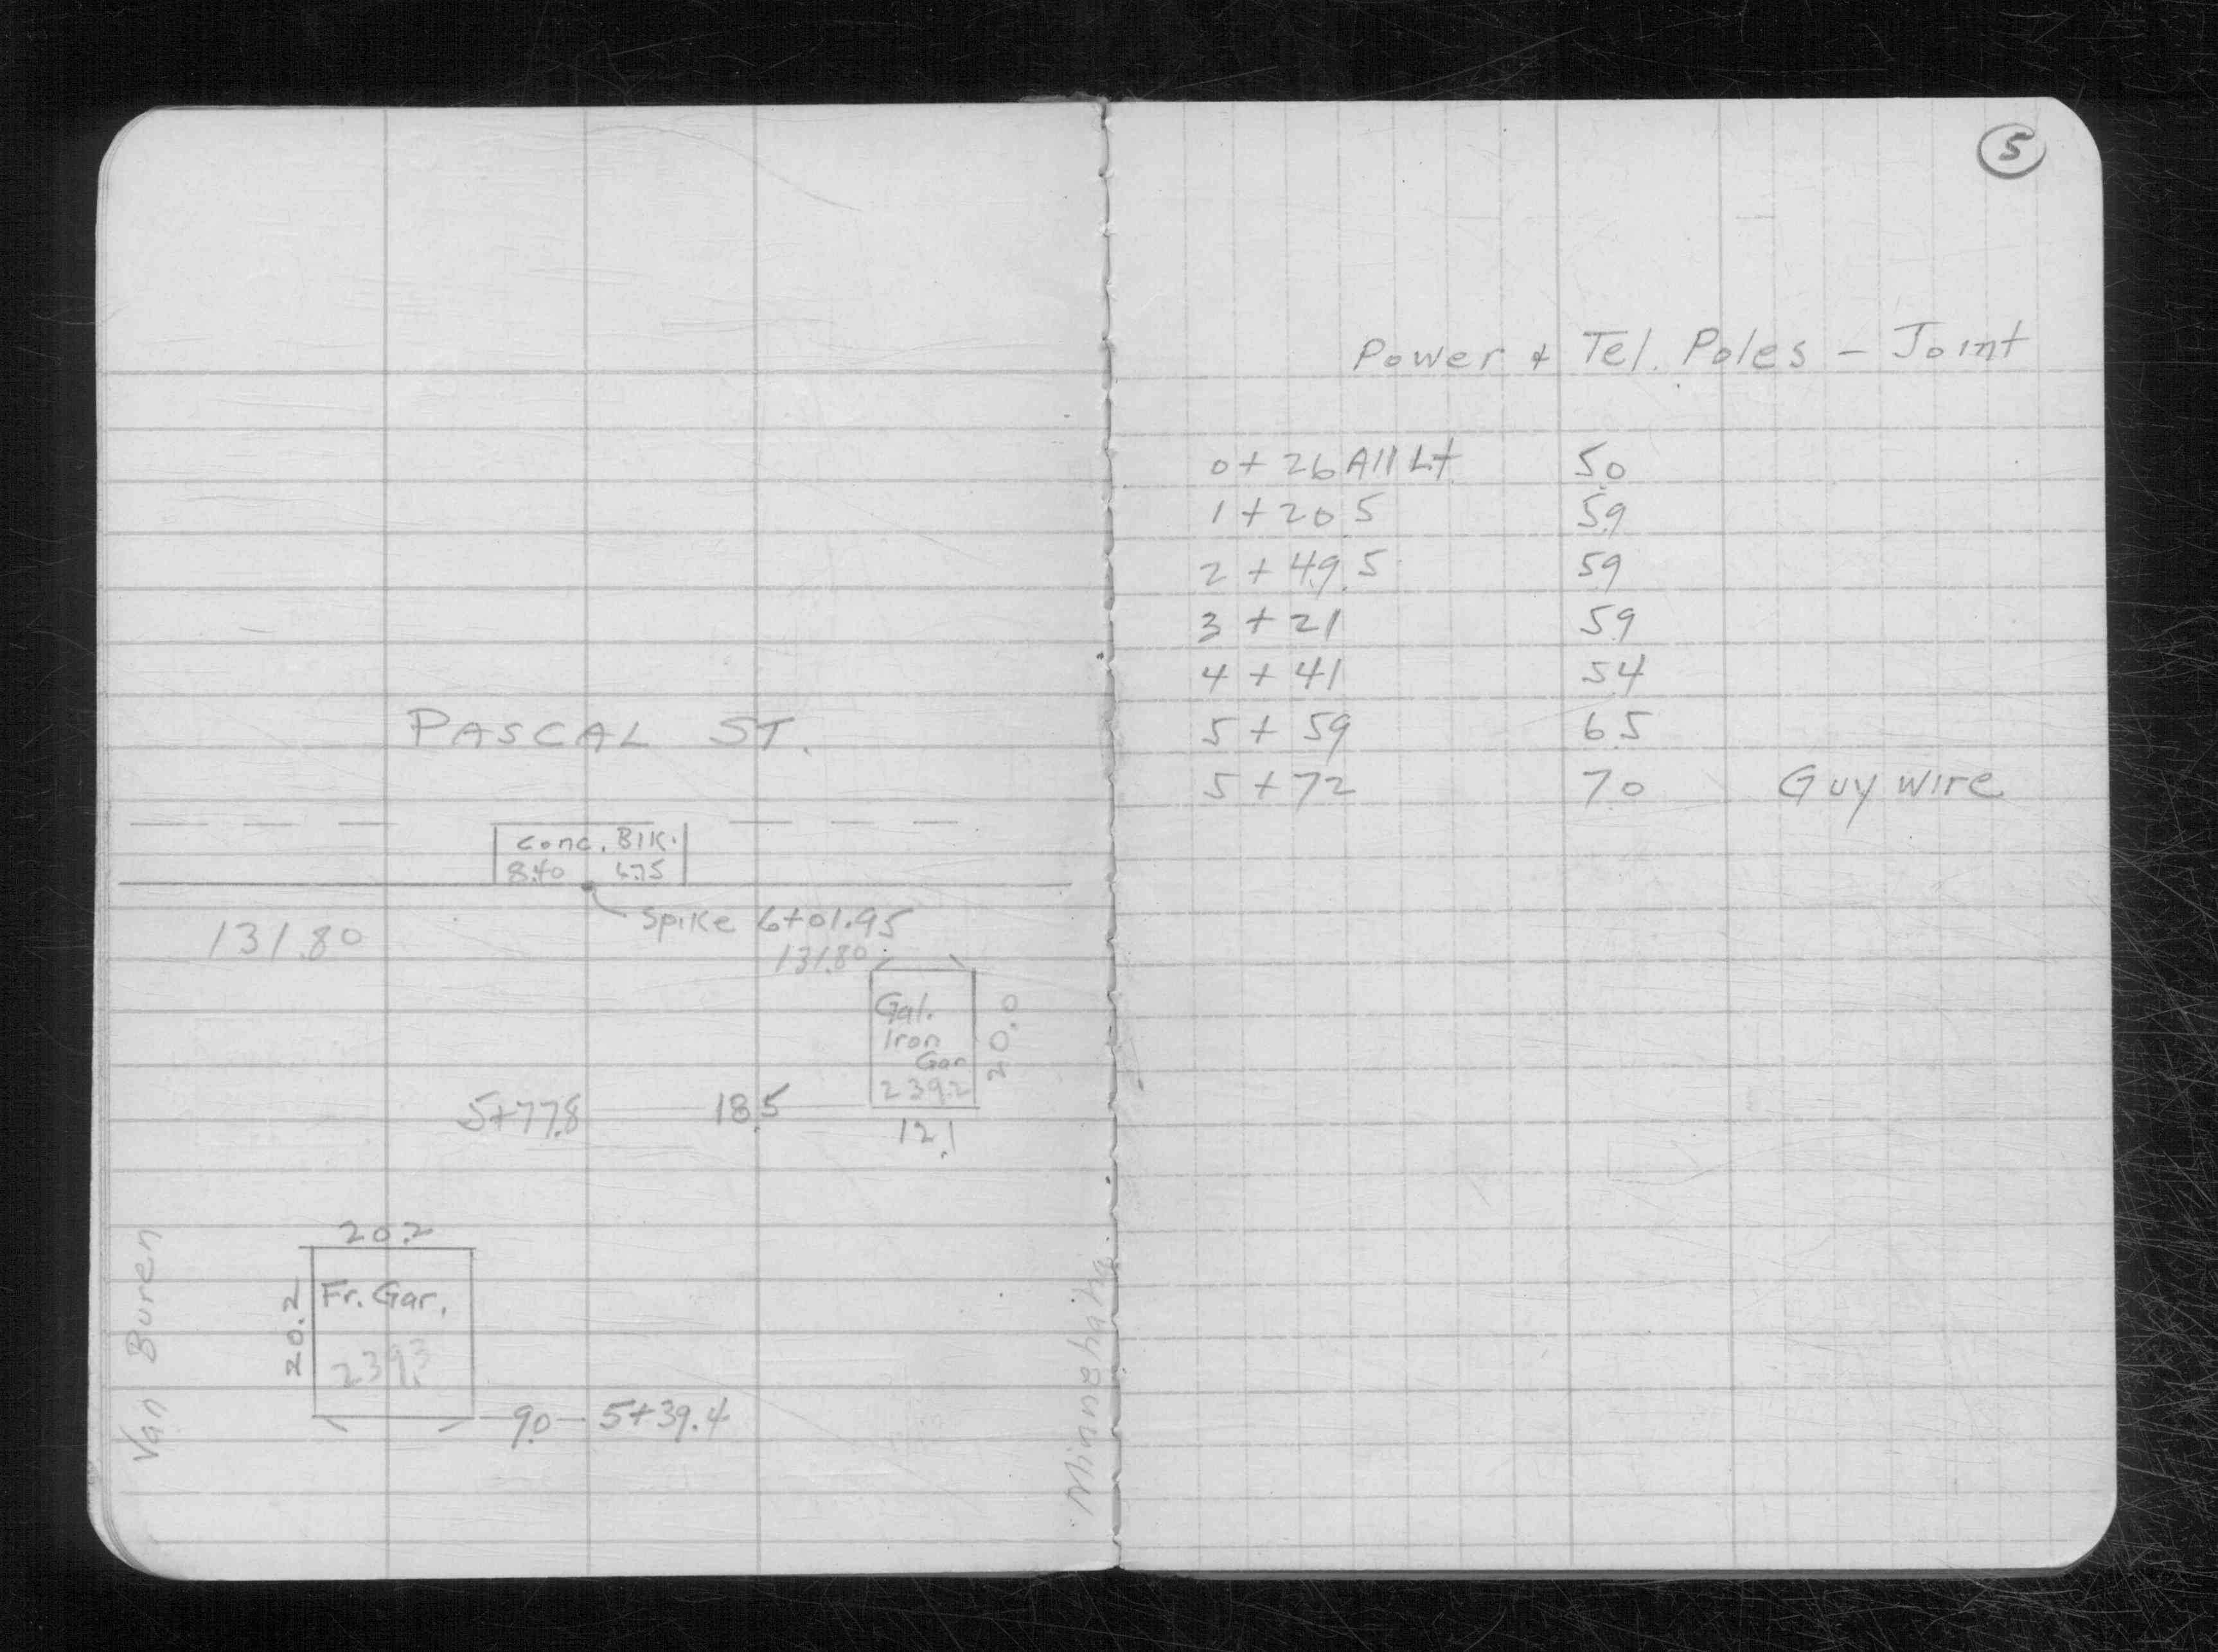 PASCAL ST.
Conc. Blk.
8.40 6.75
Spike 6+01.95
131.80
131.80
Gal.
Iron
Gar
239.2
20.0
5+77.8 18.5
12.1
20.2
20.2
Fr. Gar.
239.3
9.0 5+39.4
Van Buren
Minnehaha
5
Power & Tel. Poles - Joint
0+26 All Lt. 5.0
1+20.5 5.9
2+49.5 5.9
3+21 5.9
4+41 5.4
5+59 6.5
5+72 7.0 Guy wire